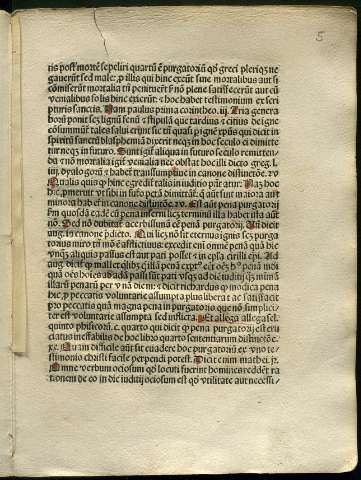 5
tis post mortē sepeliri quartū ē purgatoriū qd̄ greci pleriqȝ ne
gauerūt sed male: ꝓ illis qui hinc exeūt sine mortalibus aut si
cōmiserūt mortalia tn̄ penituerūt nō plene satisfecerūt aut cū
venialibus solis hinc exierūt: ⁊ hoc habet testimonium ex scri
pturis sanctis. Nam paulus prima corintheo. iij. Tria genera
horū ponit scȝ lignū fenū ⁊ stipulā que tardius ⁊ citius
cōsummūt tales salui erunt sic tn̄ quasi ꝑ ignē xp̄us qui dicit in
spiritū sanctū blasphemiā dixerit neqȝ in hoc seculo ei dimitte
tur neqȝ in futuro. Sunt igit̄ aliqua in futuro seculo remitten
da ⁊ nō mortalia igit̄ venialia nec obstat hoc illi dicto greg. l.
iiij. dyalogorū ⁊ habet̄ transumptiue in canone distinctōe. xv
Qualis quisqȝ hinc egredit̄ talis in iuditio p̄n̄tatur. Nā hoc
hic ꝓmerut̄ vt sibi in futo pctā dimittāt̄. q̄ aūt sunt maiora aut
minora habet̄ in canone distinctōe. xv. Est aūt pena purgatorij
Fm quosdā eadē cū pena inferni licȝ terminū illa habet illa aūt
nō. Sed nō dubitat̄ acerbissimā eē penā purgatorij. Un̄ dicit
aug. in sermone p̄dicto. Qui licȝ nō sit eternus ignis scȝ purga
torius miro tn̄ mō ē afflictiuus: excedit eni omnē penā quā hic
vnqȝ aliquis passus est aut pati posset ⁊ in ep̄la cirilli ep̄i. Ad
aug. dicit ꝙ mallet qlibȝ q̄ illā penā expt̄ eēt oēs hoīes penā
quā oēs hoīes ab adā passi sūt pati vsqȝ ad diē iudicij qȝ minimā
illarū penarū per vnā diem: ⁊ dicit richardus ꝙ modica pena
hic ꝓ peccatis voluntarie assumpta plus liberat ac satisfacit
pro peccatis quā magna pena in purgatorio que nō simplici
ter est voluntarie assumpta sed inflicta. Et allegat
quinto phisicorū. c. quarto qui dicit ꝙ pena purgatorij est cru
ciatus ineffabilis de hoc libro quarto sententiarum distinctōe.
xx. Quam difficile aūt sit euadere hoc purgatoriū ex vno te-
stimonio christi facile perpendi potest. Dicit enim mathei. xij.
Omne verbum ociosum qd̄ locuti fuerint homines reddēt ra
tionem de eo in die iudicij ociosum est qd̄ vtilitate aut necessi-